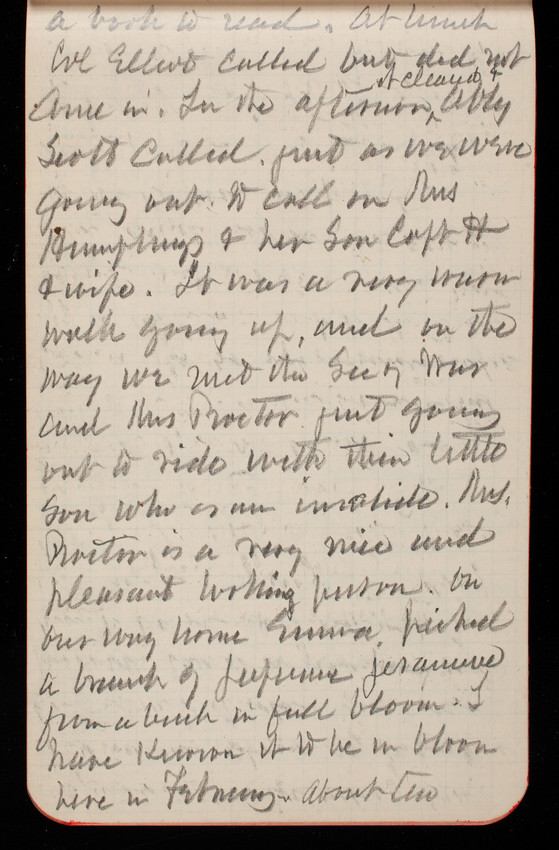 a book to read. At lunch
Col Elliot called but did not
it cleared &
come in. In the afternoon, Abby
Scott called. just as we were
going out. to call on Mrs
Humphreys & her Son Capt H
& wife. It was a very warm
walk going up, and on the
way we met the Sec of War
and Mrs Proctor just going
out to ride with their little
Son who is an invalide. Mrs.
Proctor is a very nice and
pleasant looking person. On
our way home Emma, picked
a branch of
from a bush in full bloom. I
have known it to be in bloom
here in February. About ten